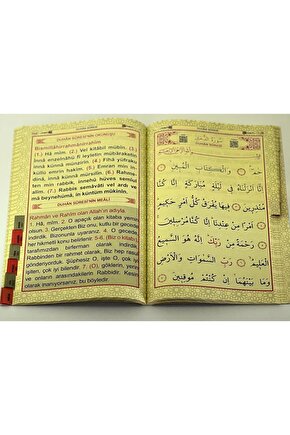 DUHÂN SÛRESİ'NİN OKUNUŞU
Bismillâhirrahmânirrahîm
(1.) Hâ, mîm. (2.) Vel kitâbil mübîn. (3.)
İnnâ enzelnâhü fî leyletin mübâraketin
innâ künnâ münzirîn. (4.) Fîhâ yüfraku
küllü emrin hakîm. (5.) Emran min in-
dinâ, innâ künnâ mürsilîn. (6.) Rahme-
ten min rabbik, innehû hüves semîul
alîm. (7.) Rabbis semâvâti vel ardı ve
mâ beynehümâ, in küntüm mûkınîn.
DUHÂN SÛRESİ'NİN MEÂLİ
Rahmân ve Rahîm olan Allah'ın adıyla
1. Hâ mîm. 2. O apaçık olan kitaba yemin
olsun. 3. Gerçekten Biz onu, kutlu bir gecede
indirdik. Bizonunla uyarıcıyız. 4. O gecede
her hikmetli konu belirlenir. 5-6. (Biz o kitabı)
katımızdan birilerinin olarak indirdik.
Rabbinden bir rahmet olarak. Biz hep resul
gönderiyorduk. Şüphesiz O, işte O, çok iyi
işiten, çok iyi bilendir. 7. (O), göklerin, yerin
ve onların arasındakilerin Rabbidir. Kesin
olarak inanıyorsanız, bu böyledir.
حٰمٓ وَالْكِتَابِ الْمُبِينِ
اِنَّٓا اَنْزَلْنَاهُ فِي لَيْلَةٍ مُبَارَكَةٍ اِنَّا كُنَّا
مُنْذِرِينَ فِيهَا يُفْرَقُ كُلُّ اَمْرٍ حَكِيمٍ
اَمْرًا مِنْ عِنْدِنَا اِنَّا كُنَّا مُرْسِلِينَ
رَحْمَةً مِنْ رَبِّكَ اِنَّهُ هُوَ السَّمِيعُ
الْعَلِيمُ رَبِّ السَّمٰوَاتِ وَالْاَرْضِ
وَمَا بَيْنَهُمَا اِنْ كُنْتُمْ مُوقِنِينَ